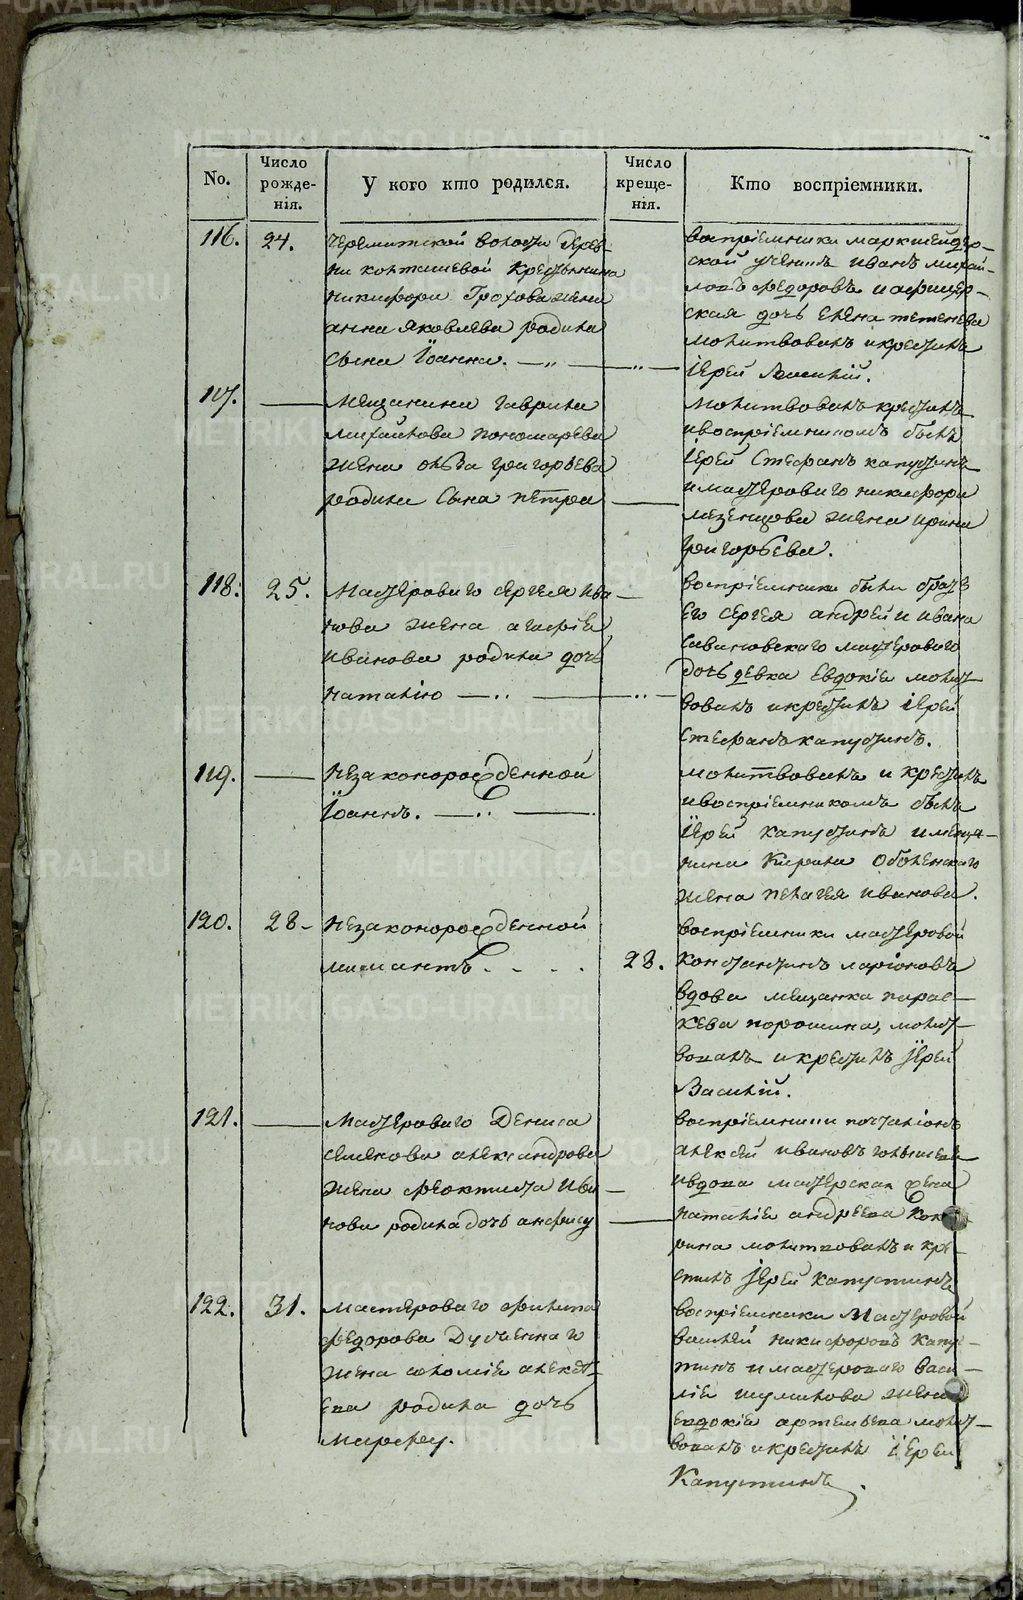 No.
Число рожде-нія.
У кого кто родился.
Число креще-нія.
Кто воспріемники.
116.
24.
Черемисской волости дерев-
ни колташевой крестьянина
никифора Грохова жена
анна яковлева родила
сына Іоанна.
воспріемники маркшейдер-
ской ученикъ иванъ михай-
ловъ федоровъ и афицер-
ская дочь елена тетенева
молитвовалъ и крестилъ
іерей Василій.
117.
Мещанина гаврила
михайлова пономарева
жена ольга григорьева
родила сына петра
молитвовалъ крестилъ
и воспріемникомъ былъ
іерей Стефанъ капустинъ
и мастероваго никифора
мезенцова жена ирина
григорьева.
118.
25.
Мастероваго сергея ива-
нова жена агафіе
иванова родила дочь
наталію
воспріемники были братъ
его сергея андрей и ивана
савиновскаго мастероваго
дочь девка евдокіе молит-
вовалъ и крестилъ іерей
стефанъ капустинъ.
119.
незаконорожденной
Іоаннъ.
молитвовалъ и крестилъ
и воспріемникомъ былъ
іерей капустинъ и меща-
нина Кирила оболенскаго
жена пелагея иванова.
120.
28.
незаконорожденной
мамантъ.
28.
воспріемники мастеровой
константинъ ларіоновъ
вдова мещанка парас-
кева порошина, молит-
вовалъ и крестилъ іерей
Василій.
121.
Мастероваго Дениса
семенова александрова
жена феоктиста ива-
нова родила дочь анфису
воспріемники почталіонъ
алексей ивановъ
и вдова мастерская жена
наталіе андреева
рина молитвовалъ и кре-
стилъ іерей капустинъ
122.
31.
мастероваго филипа
федорова
жена соломіе алексе-
ева родила дочь
марфу.
воспріемники Мастеровой
василей никифоровъ капус-
тинъ и мастероваго васи-
лія шумилова жена
евдокіе артемьева молит-
вовалъ и крестилъ іерей
Капустинъ.
METRIKI.GASO-URAL.RU